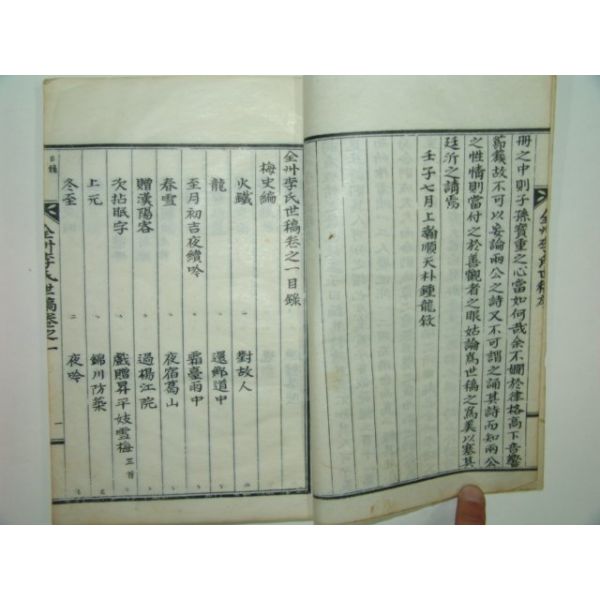 冊之中則子孫寶重之心當如何哉余不嫺於律格高下音響
節簇故不可以妄論兩公之詩又不可謂之誦其詩而知兩公
之性情則當付之於善觀者之眼姑論爲世稿之爲美以塞其
廷沂之請焉
壬子七月上澣順天朴鍾龍敘
全州李氏世稿序
全州李氏世稿卷之一目錄
梅史編
火鐵
對故人
龍
還鄉道中
至月初吉夜續吟
霜臺雨中
春雪
夜宿葛山
贈漢陽客
過楊江院
次拈眠字
戲贈昇平妓雪梅 三首
上元
錦川防築
冬至
夜吟
目錄
全州李氏世稿卷之一
一